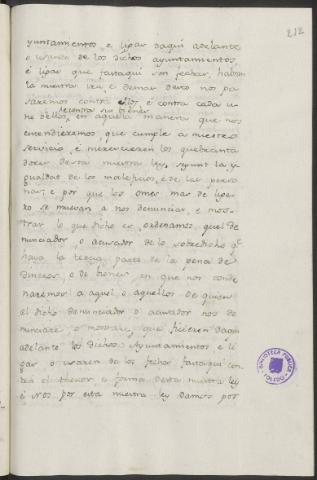 212
yuntamientos, e ligas daqui adelante
o usaren de los dichos ayuntamientos,
é ligas que fastaqui son fechas, habran
la nuestra ira, e demas desto nos pa
saremos contra ellos, é contra cada u
contra sus bienes
no dellos, en aquella manera que nos
entendieremos, que cumple a nuestro
servicio, é merecieren los quebranta
dores desta nuestra ley, segunt la y
gualdat de los maleficios, é de las perso
nas; e por que los omes mas de lige
ro se muevan a nos denunciar, e mos
trar lo que dicho es, ordenamos, quel de
nunciador, o acusador de lo sobredicho qe
haya la tercia parte de la pena de
dineros, o de bienes, en que nos conde
naremos a aquel, o aquellos de quien
el dicho denunciador o acusador nos de
nunciare o mostrare, que ficieren daqui
adelante los dichos Ayuntamientos e li
gas o usaren de los fechos fastaqui con
tra el thenor, e forma desta nuestra ley
é Nos por esta nuestra ley damos por
BIBLIOTECA PUBLICA
TOLEDO